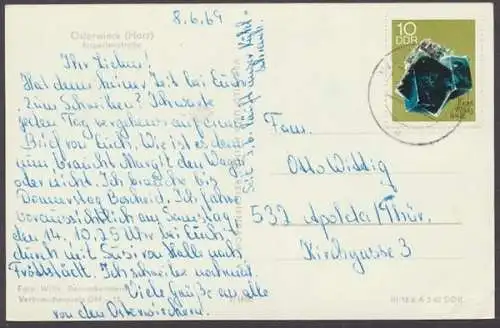 8.6.69
Osterwieck (Harz)
Ihr Lieben!
Hat denn keiner Zeit bei Euch
zum Schreiben? Ich warte
jeden Tag vergebens auf einen
Brief von Euch. Wie ist es denn
nun, braucht Margit den Wagen
oder nicht. Ich brauche bis
Donnerstag Bescheid. Ich fahre
voraussichtlich am Samstag
den 14. 10,29 Uhr bei Euch
durch mit Susi von Halle nach
Fröttstädt. Ich schreibe nochmal.
Viele Grüße an alle
von den Osterwieckern.
Seit 3.6. läuft unser Kühl-
schrank.
10
DDR
Fam.
Otto Wittig
532 Apolda/Thür.
Kirchgasse 3
Foto Willy
DDR